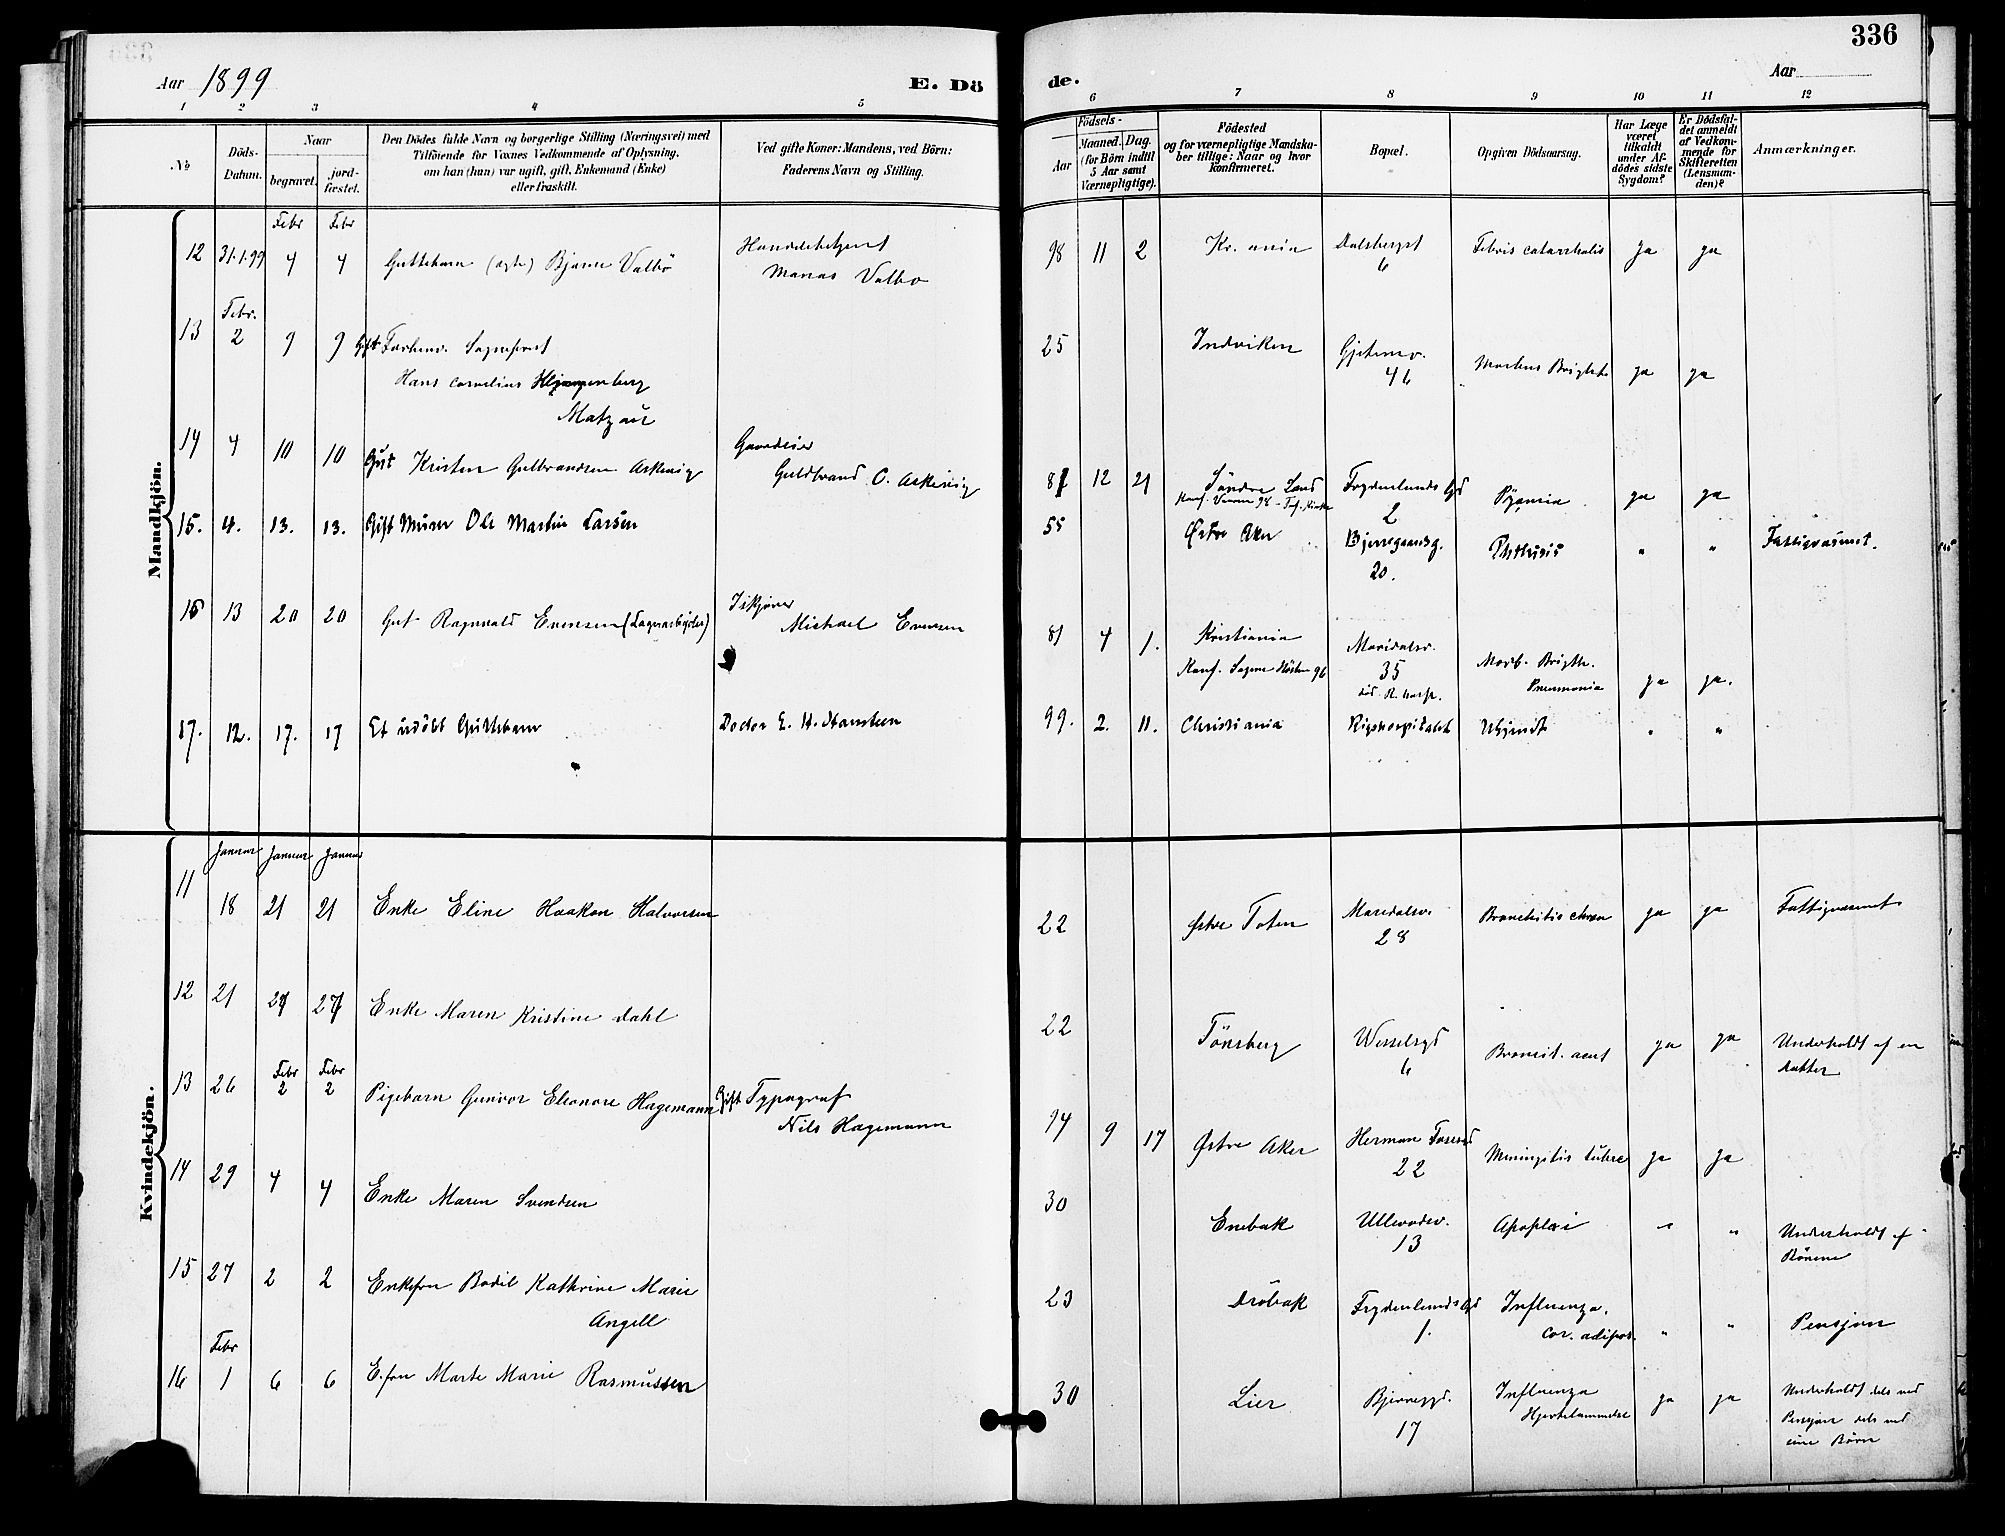 336
Aar 1899
E. Dö
de.
Aar
1 2 3 4 5 6 7 8 9 10 11 12
No
Döds-Datum.
Naar
begravet.
jordfæstet.
Den Dödes fulde Navn og borgerlige Stilling (Næringsvei) med
Tilföiende for Voxnes Vedkommende af Oplysning,
om han (hun) var ugift, gift, Enkemand (Enke)
eller fraskilt.
Ved gifte Koner: Mandens, ved Börn:
Faderens Navn og Stilling.
Födsels-
Aar
Maaned.
Dag.
(for Börn indtil
5 Aar samt
Værnepligtige).
Födested
og for værnepligtige Mandska-
ber tillige: Naar og hvor
konfirmeret.
Bopæl.
Opgiven Dödsaarsag.
Har Læge
været
tilkaldt
under Af-
dödes sidste
Sygdom?
Er Dödsfal-
det anmeldt
af Vedkom-
mende for
Skifteretten
(Lensman-
den)?
Anmærkninger.
Mandkjön.
Febr Febr
12 31.1.99 4 4 Guttebarn (ægte) Bjarne Valbö
Handelsbetjent
Valbo
98 11 2 Kr.ania Dalsbergst 6 Febris catarrhalis Ja ja
Febr.
13 2 9 9 Gift Forhenv. Sogneprest
Hans Cornelius
Matzau
25 Indviken 46 Morbus Brighti ja ja
14 4 10 10 Kristen Gulbrandsen Askevig
Gaardeier
Guldbrand O. Askevig
81 12 21 Søndre Land
Frydenlunds Gd 2 Pyæmia ja ja
15. 4. 13. 13. Gift Murer Ole Martin Larsen
55 Østre Aker Bjerregaardsg. 20. Phthisis " " Fattigvæsenet.
16 13 20 20 Gut Ragnvald Evensen (Lagerarbeider)
Iskjører
Michael Evensen
81 4 1. Kristiania
Konf. Sagene Høsten 96
Maridalsv. 35
Morb. Brigth.
Pneumonia ja ja.
17. 12. 17. 17 Et udöbt Guttebarn
Doctor E. H. Hansteen
99. 2. 11. Christiania Rigshospitalet Ukjendt " "
Kvindekjön.
Januar Januar Januar
11 18 21 21 Enke Eline Haakon Halvorsen
22 Østre Toten Maridalsv. 28 Bronchitis chron ja ja Fattigvæsenet
12 21 27 27 Enke Maren Kristine Dahl
22 Tönsberg Wesselsgd 6 Bronsit. acut ja ja Underholdt af en
datter
Febr Febr
13 26 2 2 Pigebarn Gunvor Eleonore Hagemann
Gift Typograf
Nils Hagemann
94 9 17 Østre Aker Herman Fossgd 22 Meningitis tuberc ja ja
14 29 4 4 Enke Maren Svendsen
30 Enebak Ullevoldsv. 13 Apoplexi " " Underholdt af
Börnene
15 27 2 2 Enkefru Bodil Kathrine Marie
Angell
23 Dröbak Frydenlunds Gd 1. Influenza.
cor. adipos. " " Pensjon
Febr
16 1 6 6 E.fru Marte Marie Rasmussen
30 Lier Bjerregd. 17 Influenza
Hjertelammelse ja ja Underholdt dels ved
Pensjon dels ved
sine Börn